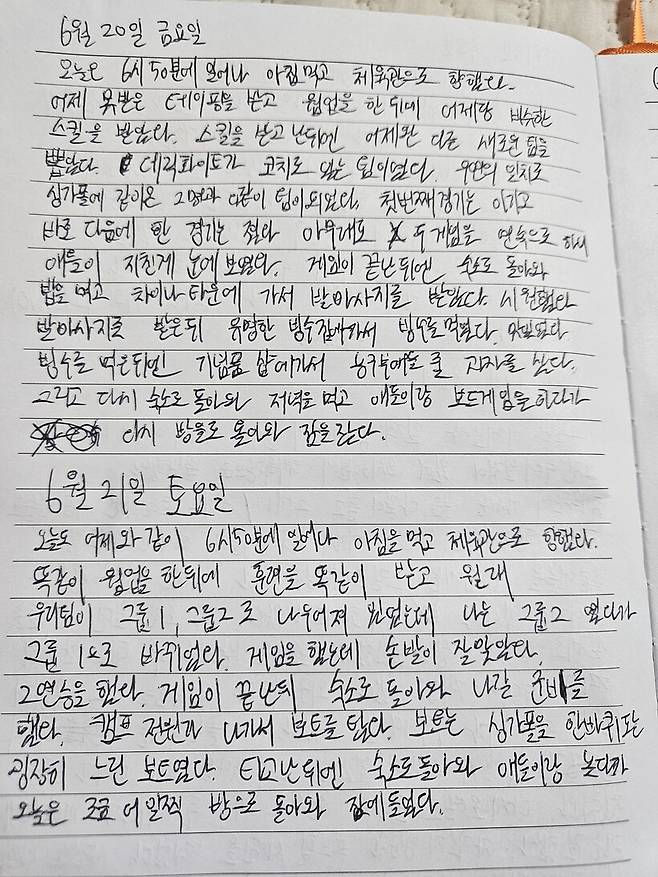 6월 20일 금요일
오늘은 6시 50분에 일어나 아침먹고 체육관으로 향했다.
어제 못받은 테이핑을 받고 웜업을 한 뒤에 어제랑 비슷한
스킬을 받았다. 스킬을 받고 난뒤엔 어제완 다른 새로운 팀을
뽑았다. 데릭화이트가 코치로 있는 팀이였다. 우연의 일치로
싱가폴에 같이온 2명과 같이 팀이되었다. 첫번째경기는 이기고
바로 다음에 한 경기는 졌다 아무래도 두게임을 연속으로 하니
애들이 지친게 눈에 보였다. 게임이 끝난뒤엔 숙소로 돌아와
밥을 먹고 차이나 타운에 가서 발마사지를 받았다. 시원했다
발마사지를 받은뒤 유명한 빙수집에가서 빙수를먹었다. 맛있었다
빙수를 먹은뒤엔 기념품 샵에가서 줄 과자를 샀다.
그리고 다시 숙소로 돌아와 저녁을 먹고 애들이랑 보드게임을 하다가
다시 방으로 돌아와 잠을잤다.
6월 21일 토요일
오늘도 어제와 같이 6시50분에 일어나 아침을 먹고 체육관으로 향했다.
똑같이 웜업을 한뒤에 훈련을 똑같이 받고 원래
우리팀이 그룹1, 그룹2로 나누어져 있었는데 나는 그룹2 였다가
그룹 1으로 바뀌었다. 게임을 했는데 손발이 잘맞았다.
2연승을 했다. 게임이 끝난뒤 숙소로 돌아와 나갈 준비를
했다. 캠프 전원과 나가서 보트를 탔다. 보트는 싱가폴을 한바퀴도는
굉장히 느린 보트였다. 타고난뒤엔 숙소로돌아와 애들이랑 놀다가
오늘은 조금 더 일찍 방으로 돌아와 잠에들었다.